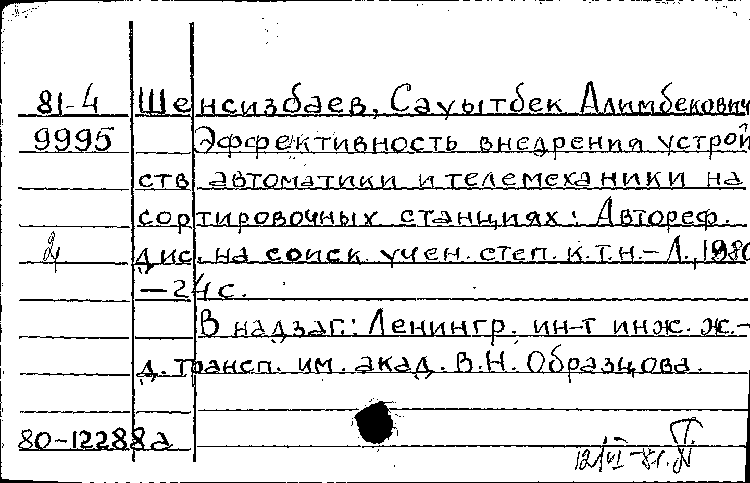 81-4 Шенсизбаев, Сауытбек Алимбекович
9995 Эффективность внедрения устрой
ств автоматики и телемеханики на
сортировочных станциях: Автореф.
дис. на соиск. учен. степ. к.т.н. - Л., 1980
- 24 с.
В надзаг.: Ленингр. ин-т инж. ж.-
д. трансп. им. акад. В.Н. Образцова.
80-12288а
12/VI-81.